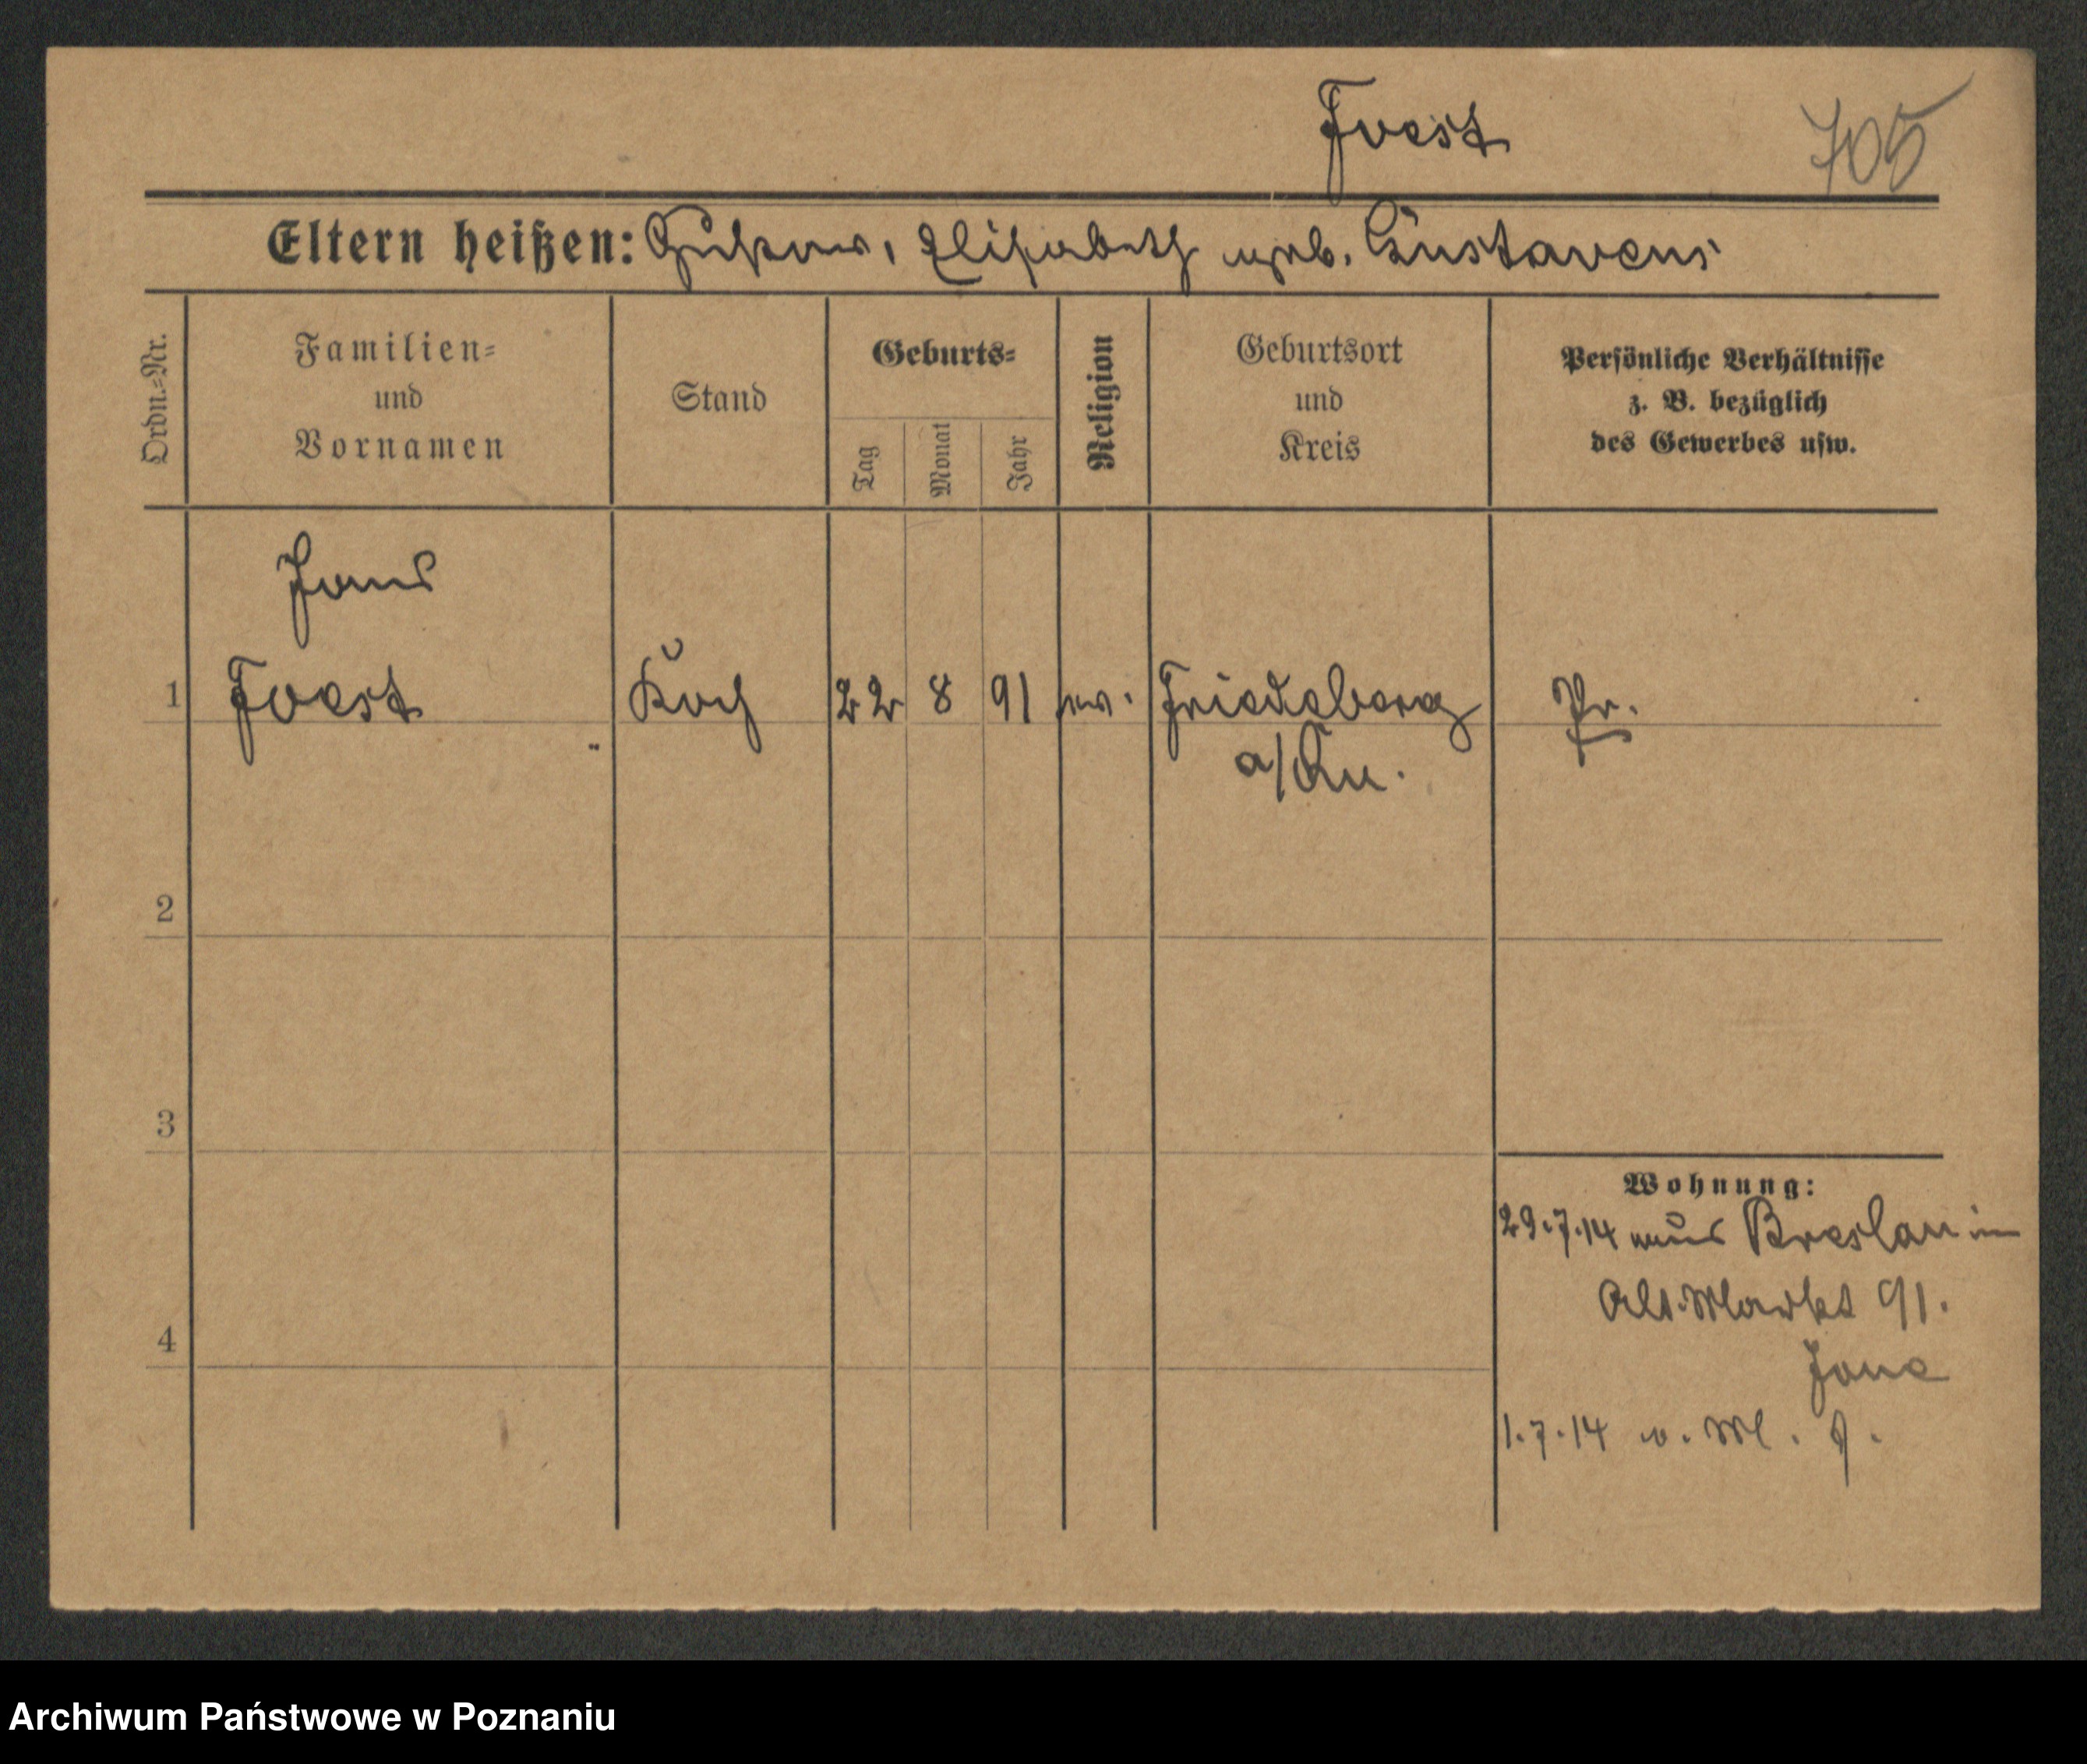 Joest 705
Eltern heißen: Gustav, Elisabeth geb. Gustavus
Ordn.=Nr.
Familien=
und
Vornamen
Stand
Geburts=
Tag
Monat
Jahr
Religion
Geburtsort
und
Kreis
Persönliche Verhältnisse
z. B. bezüglich
des Gewerbes usw.
Hans
1 Joest Koch 22 8 91 ev. Friedeberg Pr.
a/Qu.
2
3
4
Wohnung:
29.7.14 aus Breslau in
Alt. Markt 91.
1.7.14
Archiwum Państwowe w Poznaniu